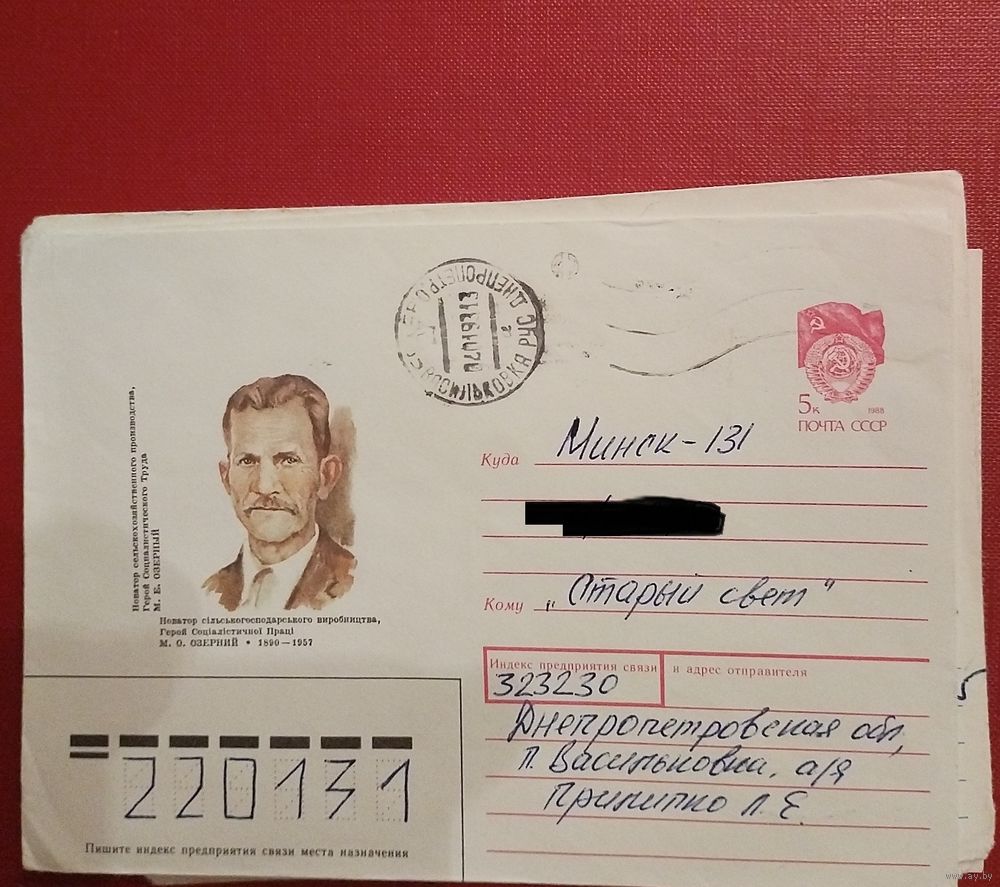 Новатор сельскохозяйственного производства,
Герой Социалистического Труда
М. Е. ОЗЕРНЫЙ
Новатор сільськогосподарського виробництва,
Герой Соціалістичної Праці
М. О. ОЗЕРНИЙ • 1890—1957
ДНЕПРОПЕТР.
ВАСИЛЬКОВКА РУС
5к
1988
ПОЧТА СССР
Куда Минск-131
Кому „Старый свет"
Индекс предприятия связи и адрес отправителя
323230
Днепропетровская обл,
п. Васильковка, а/я
Л. Е.
220131
Пишите индекс предприятия связи места назначения
5
www.ay.by